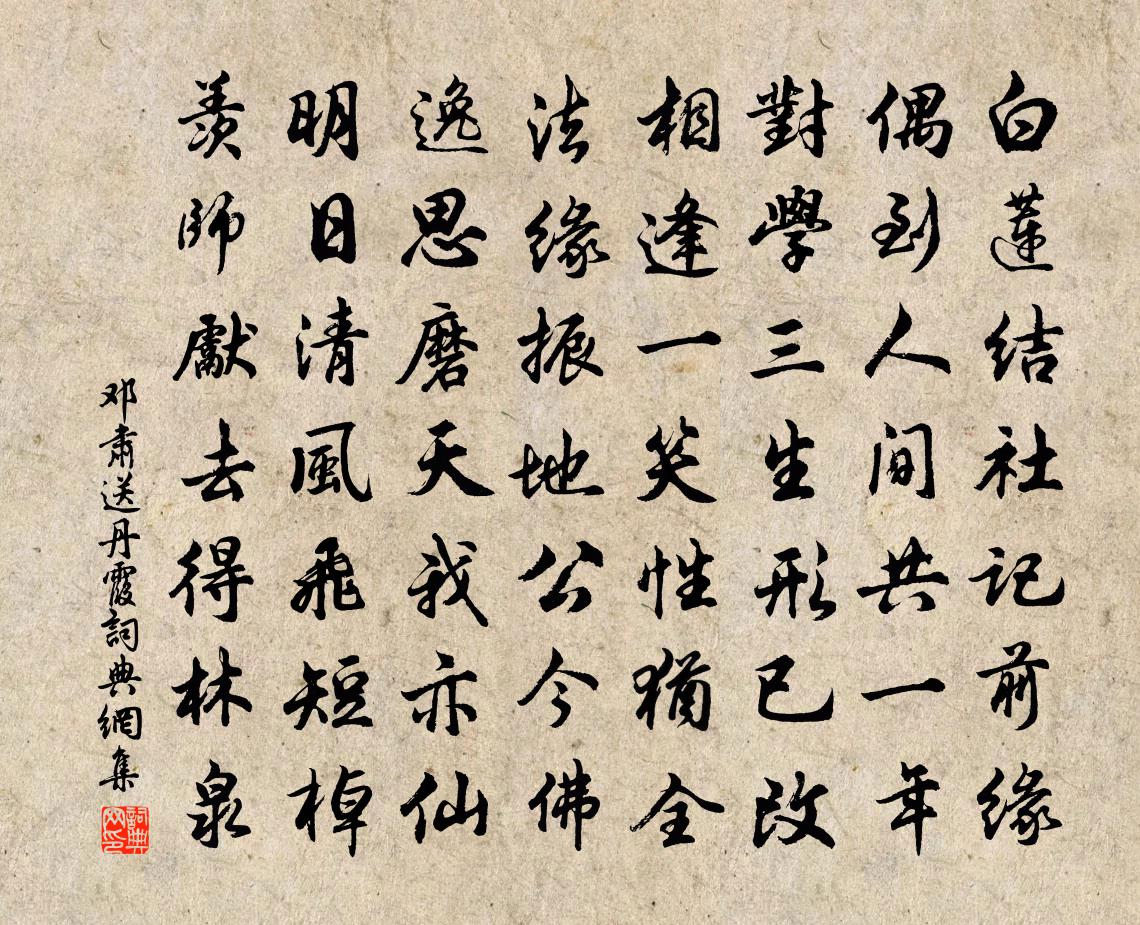 白蓮结社记前缘
偶到人间共一年
對學三生形已改
相逢一笑性猶全
法缘振地公今佛
逸思磨天我亦仙
明日清風飛短棹
羨師獻去得林泉
邓肃送丹霞詞典網集
詞典网印